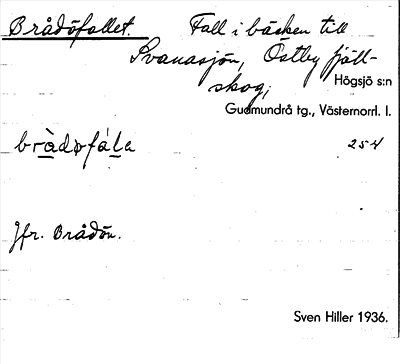 Brådöfallet. Fall i bäcken till
Svanasjön, Östby fjäll-
skog,
Högsjö s:n
Gudmundrå tg., Västernorrl. l.
bràdøfáḷa 254
Jfr. Brådön.
Sven Hiller 1936.